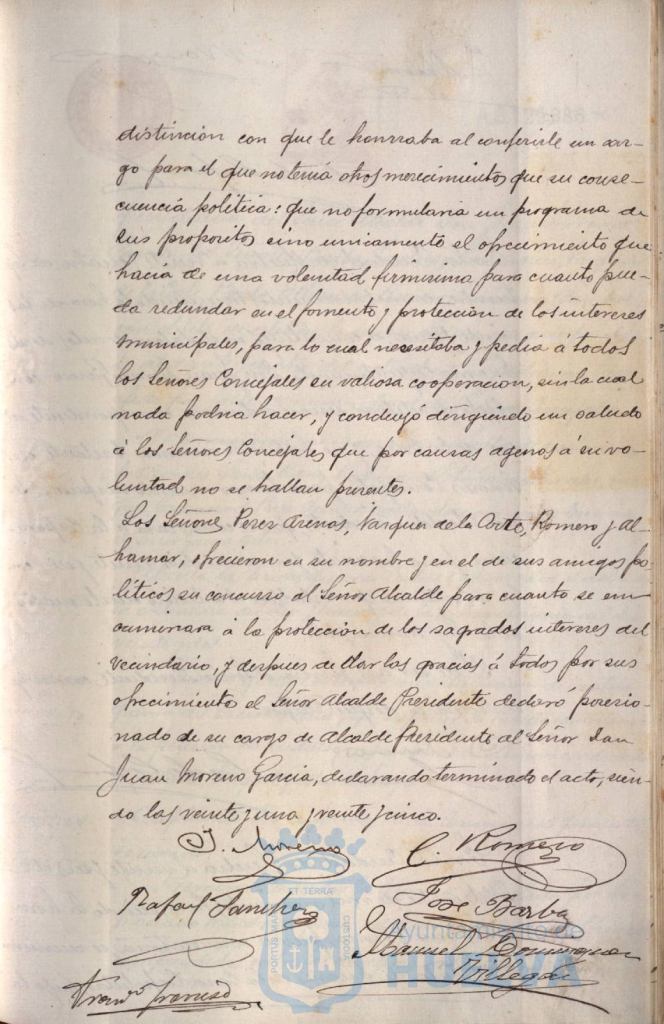 distincion con que le honrraba al conferirle un car-
go para el que no tenia otros merecimientos que su conse-
cuencia politica: que no formularia un programa de
sus propositos sino unicamente el ofrecimiento que
hacia de una voluntad firmisima para cuanto pue-
da redundar en el fomento y proteccion de los intereses
municipales, para lo cual necesitaba y pedia á todos
los Señores Concejales su valiosa cooperacion, sin la cual
nada podria hacer, y concluyó dirigiendo un saludo
á los Señores Concejales que por causas agenas á su vo-
luntad no se hallan presentes.
Los Señores Perez Arenas, Vazquez de la Corte, Romero y Al-
hamar, ofrecieron en su nombre y en el de sus amigos po-
líticos su concurso al Señor Alcalde para cuanto se en-
caminara á la proteccion de los sagrados intereses del
vecindario, y despues de dar las gracias á todos por sus
ofrecimientos el Señor Alcalde Presidente declaró posesio-
nado de su cargo de Alcalde Presidente al Señor Don
Juan Moreno Garcia, declarando terminado el acto, sien-
do las veinte y una y veinte y cinco.
J. Moreno C. Romero
Rafael Sanchez Jose Barba
Manuel Dominguez
Villegas
ET TERRÆ
PORTUS MARIS
CUSTODIA
Ayuntamiento de
HUELVA